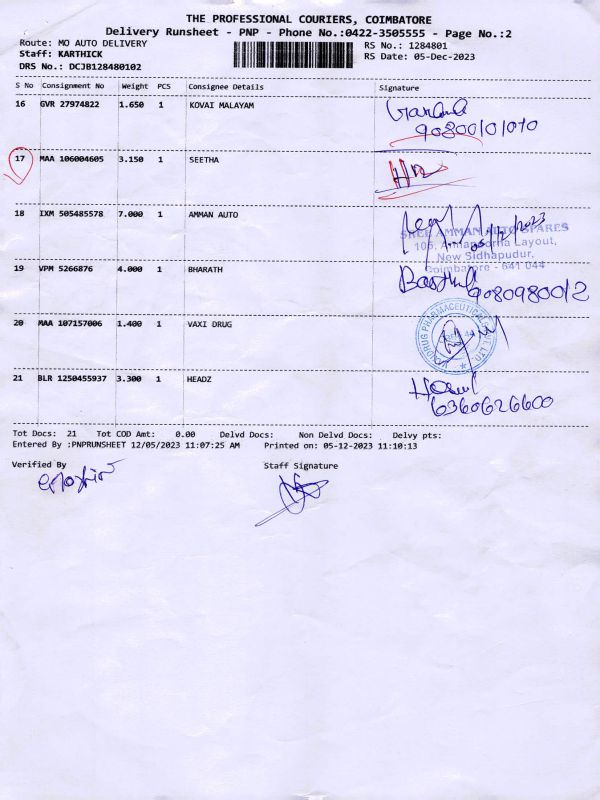 THE PROFESSIONAL COURIERS, COIMBATORE
Delivery Runsheet - PNP - Phone No.:0422-3505555 - Page No.:2
Route: MO AUTO DELIVERY RS No.: 1284801
Staff: KARTHICK RS Date: 05-Dec-2023
DRS No.: DCJB128480102
S No Consignment No Weight PCS Consignee Details Signature
16 GVR 27974822 1.650 1 KOVAI MALAYAM
17 MAA 106004605 3.150 1 SEETHA
18 IXM 505485578 7.000 1 AMMAN AUTO
05/12/2023
SREE AMMAN AUTO SPARES
Layout,
New Sidhapudur,
Coimbatore - 641 044
19 VPM 5266876 4.000 1 BHARATH
20 MAA 107157006 1.400 1 VAXI DRUG
21 BLR 1250455937 3.300 1 HEADZ
6360626600
Tot Docs: 21 Tot COD Amt: 0.00 Delvd Docs: Non Delvd Docs: Delvy pts:
Entered By :PNPRUNSHEET 12/05/2023 11:07:25 AM Printed on: 05-12-2023 11:10:13
Verified By Staff Signature